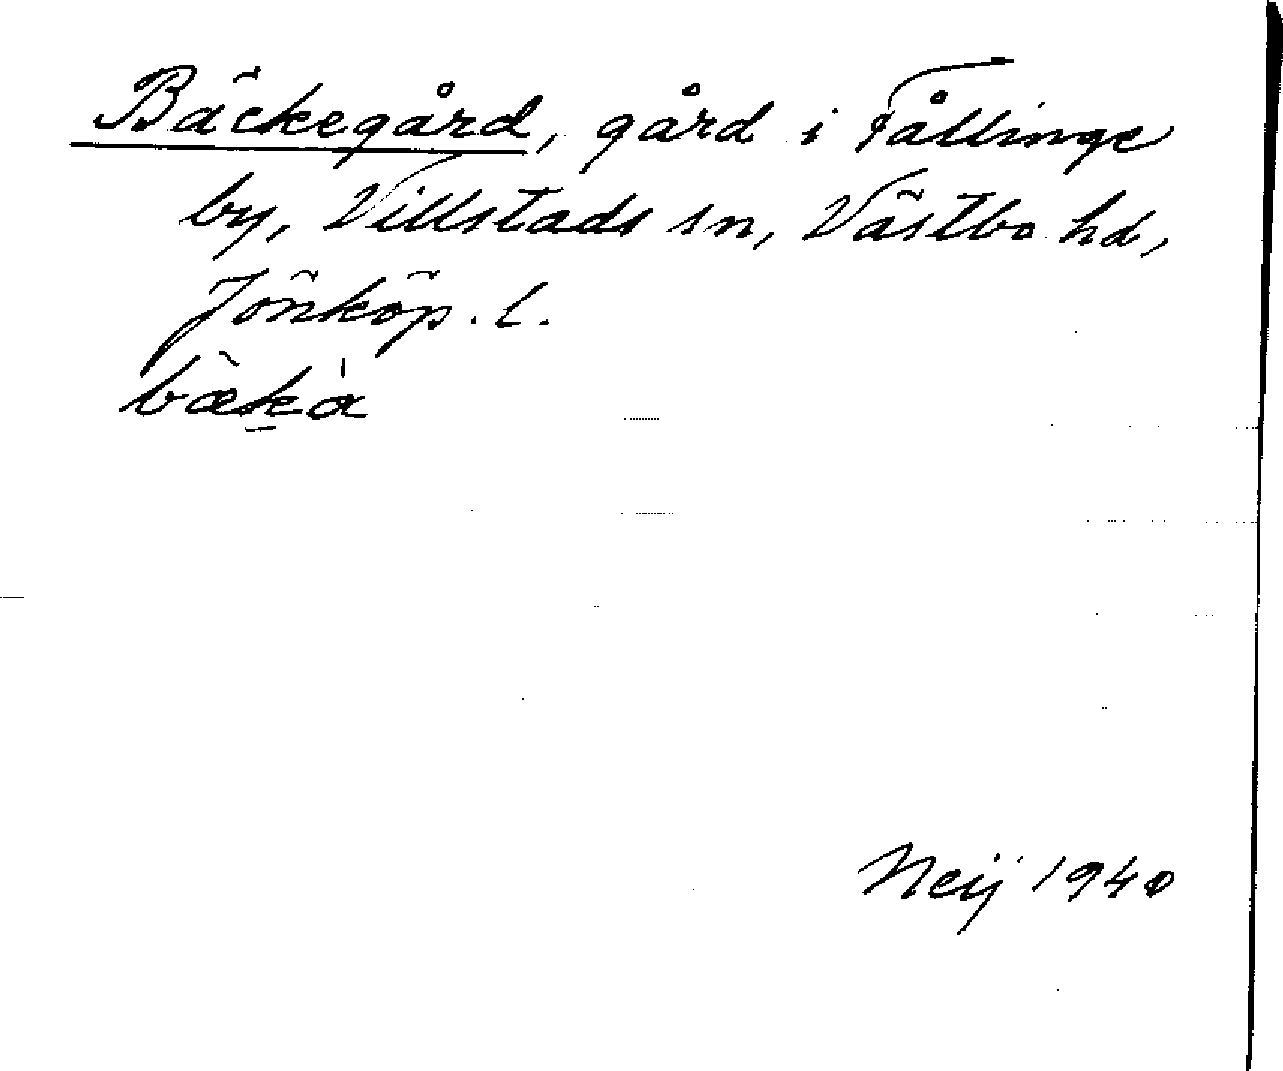 Bäckegård, gård i Fållinge
by, Villstads sn, Västbo hd,
Jönköp. l.
bæ̀kà
Neij 1940